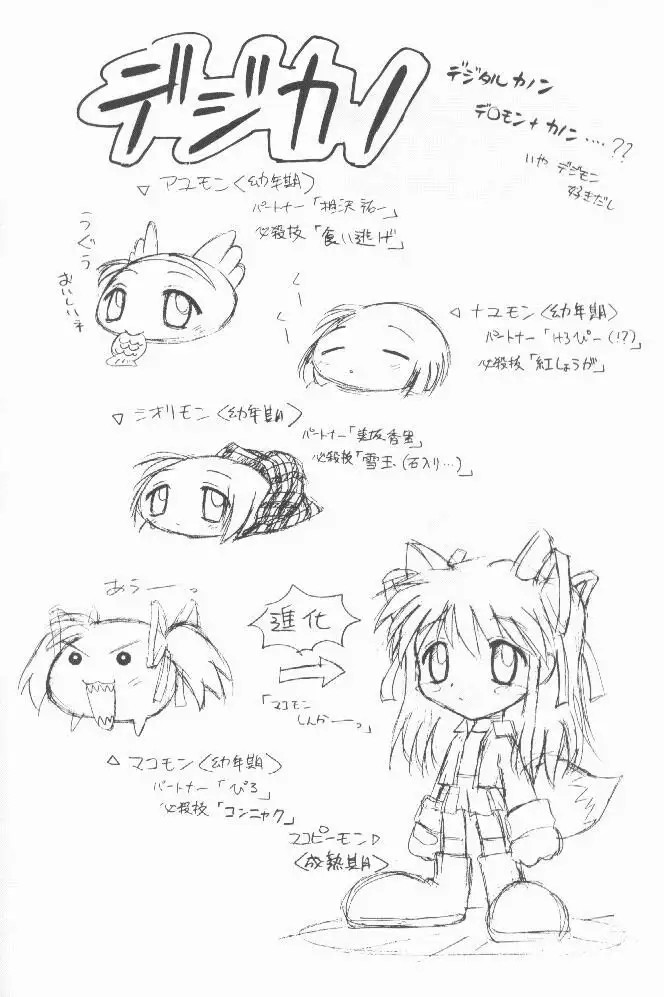 デジカノ
デジタルカノン
デ○モン+カノン‥‥??
いや デジモン
好きだし
▽ アユモン〈幼年期〉
パートナー「相沢祐一」
必殺技「食い逃げ」
うぐぅ
おいしいネ
くー
くー
◁ ナユモン〈幼年期〉
パートナー「けろぴー(!?)」
必殺技「紅しょうが」
▽ シオリモン〈幼年期〉
パートナー「美坂香里」
必殺技「雪玉(石入り…)」
あぅーっ
進化
「マコモン
しんかーっ」
△ マコモン〈幼年期〉
パートナー「ぴろ」
必殺技「コンニャク」
マコピーモン▷
〈成熟期〉